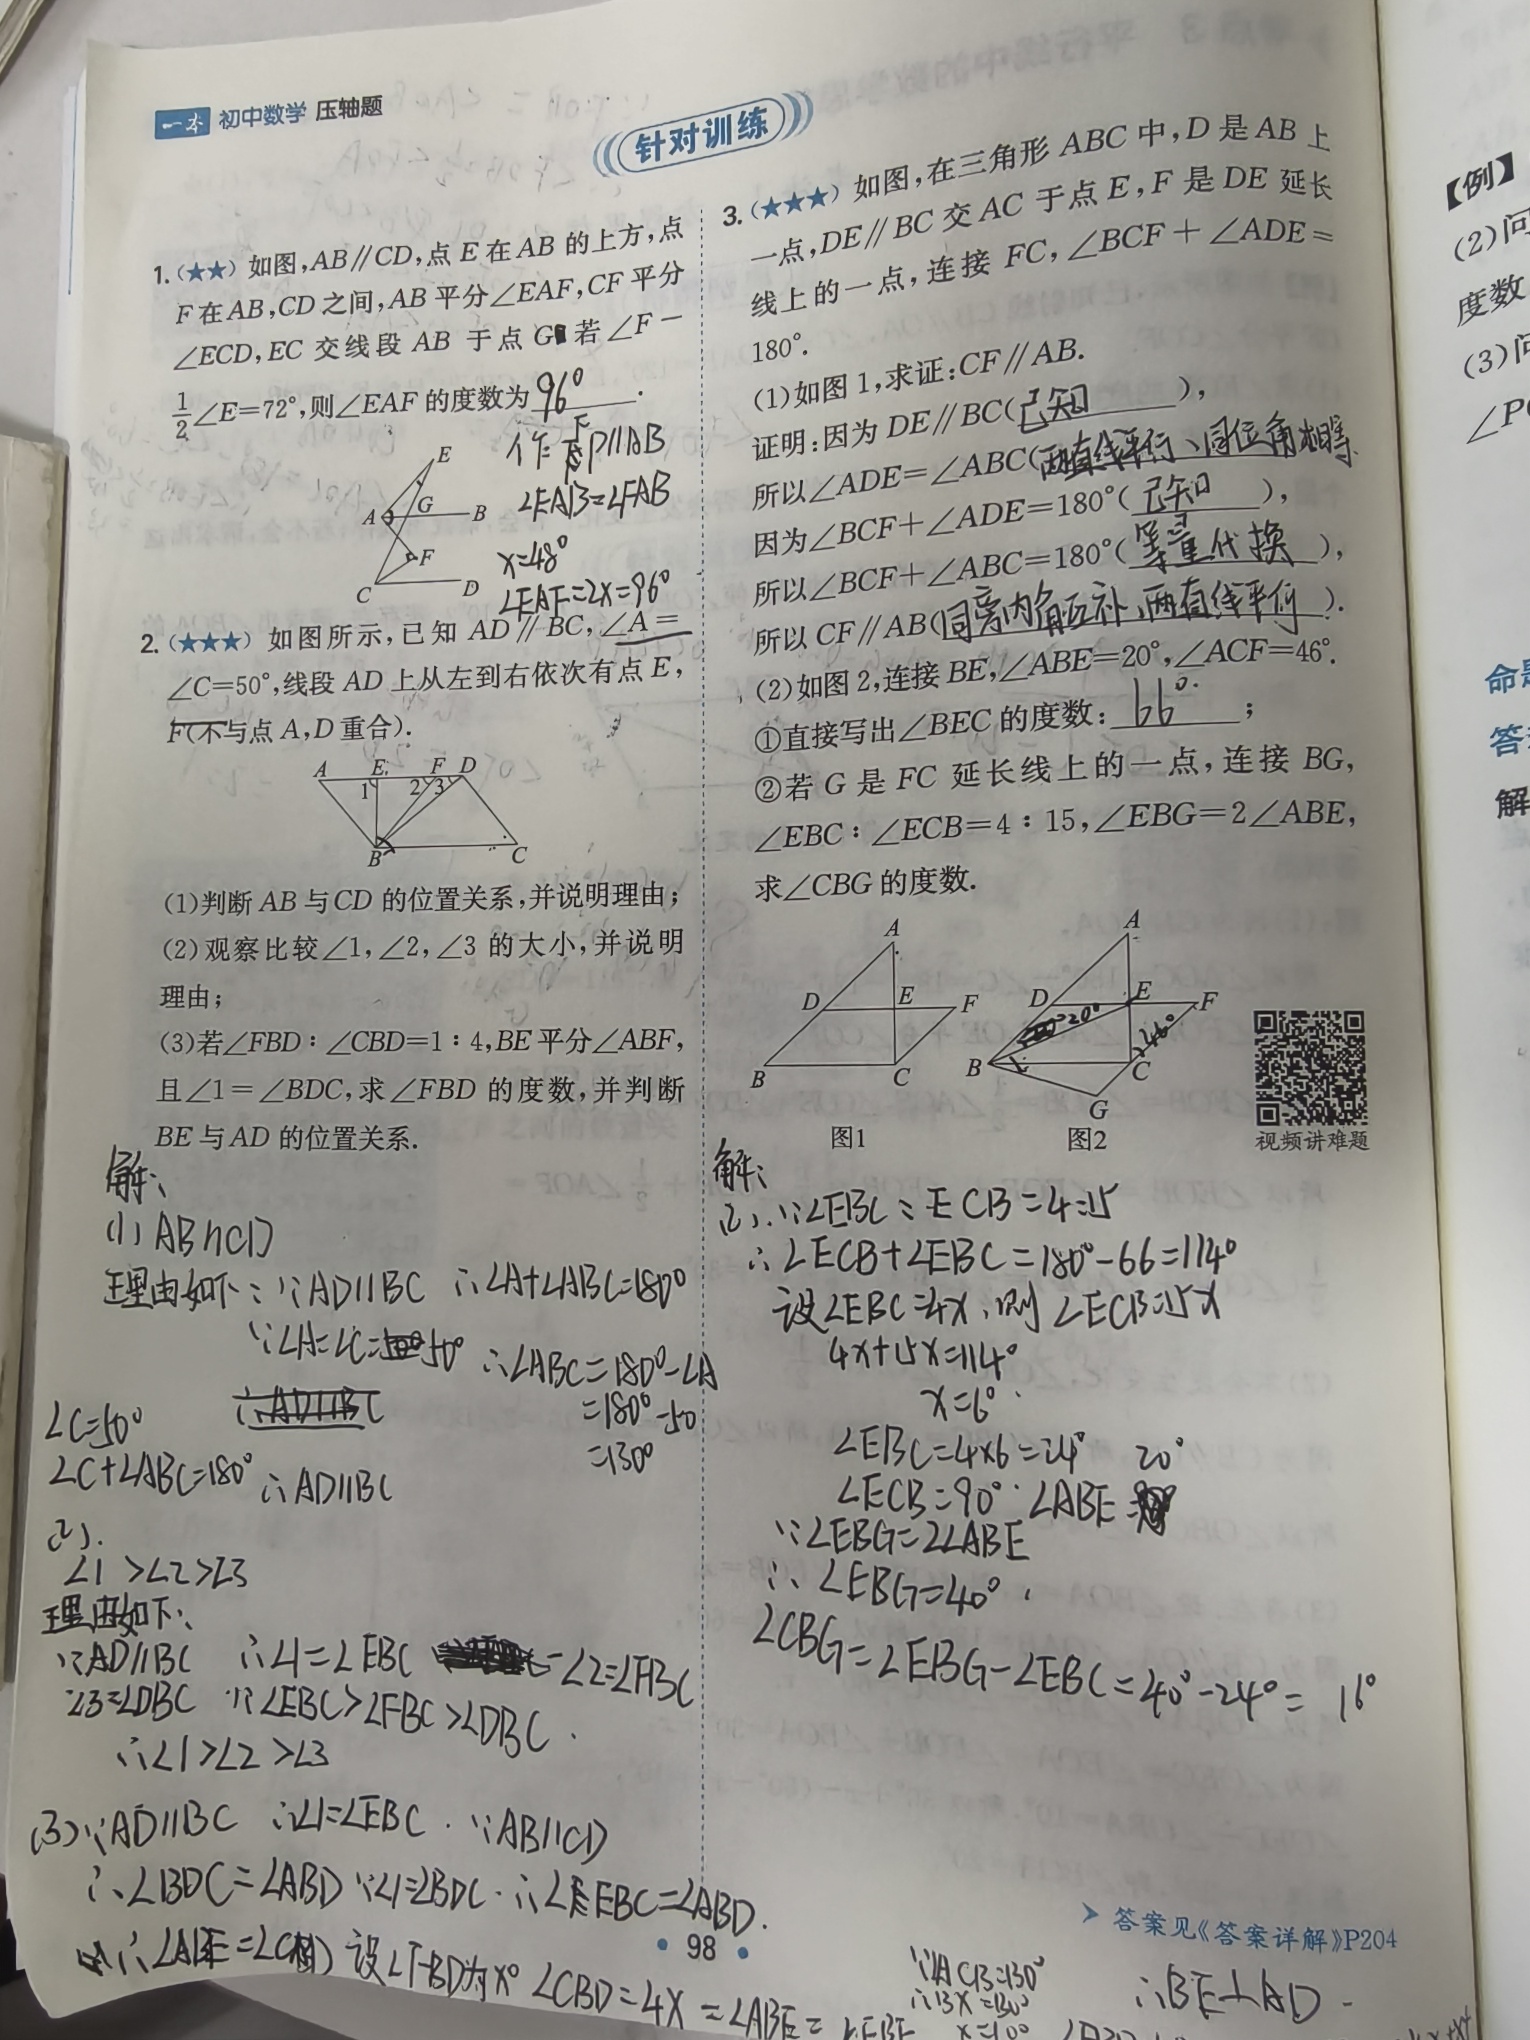 一本 初中数学 压轴题
针对训练
1.(★★)如图,AB∥CD,点E在AB的上方,点
F在AB,CD之间,AB平分∠EAF,CF平分
∠ECD,EC交线段AB于点G 若∠F－
1/2∠E=72°,则∠EAF的度数为 96° .
作 FP∥AB
∠EAB=∠FAB
x=48°
∠EAF=2x=96°
E
A G B
F
C D
2.(★★★)如图所示,已知AD∥BC,∠A=
∠C=50°,线段AD上从左到右依次有点E,
F(不与点A,D重合).
A E F D
1 2 3
B C
(1)判断AB与CD的位置关系,并说明理由;
(2)观察比较∠1,∠2,∠3的大小,并说明
理由;
(3)若∠FBD∶∠CBD=1∶4,BE平分∠ABF,
且∠1=∠BDC,求∠FBD的度数,并判断
BE与AD的位置关系.
解:
(1) AB∥CD
理由如下: ∵AD∥BC ∴∠A+∠ABC=180°
∵∠A=∠C=50° ∴∠ABC=180°-∠A
=180°-50
=130°
∴AD∥BC
∠C=50°
∠C+∠ABC=180° ∴AD∥BC
(2).
∠1>∠2>∠3
理由如下:
∵AD∥BC ∴∠1=∠EBC ∠2=∠FBC
∠3=∠DBC ∵∠EBC>∠FBC>∠DBC.
∴∠1>∠2>∠3
(3)∵AD∥BC ∴∠1=∠EBC. ∵AB∥CD
∴∠BDC=∠ABD ∵∠1=∠BDC. ∴∠EBC=∠ABD.
∴∠ABE= 设∠FBD为x° ∠CBD=4x=∠ABE=
3.(★★★)如图,在三角形ABC中,D是AB上
一点,DE∥BC交AC于点E,F是DE延长
线上的一点,连接FC,∠BCF+∠ADE=
180°.
(1)如图1,求证:CF∥AB.
证明:因为DE∥BC(已知),
所以∠ADE=∠ABC(两直线平行、同位角相等
因为∠BCF+∠ADE=180°(已知),
所以∠BCF+∠ABC=180°(等量代换),
所以CF∥AB(同旁内角互补,两直线平行).
(2)如图2,连接BE,∠ABE=20°,∠ACF=46°.
①直接写出∠BEC的度数: 66°. ;
②若G是FC延长线上的一点,连接BG,
∠EBC∶∠ECB=4∶15,∠EBG=2∠ABE,
求∠CBG的度数.
A
D E F
B C
图1
A
D E F
20°
46°
B C
G
图2
视频讲难题
解:
(2).∵∠EBC:ECB=4:15
∴∠ECB+∠EBC=180°-66=114°
设∠EBC=4x,则∠ECB=15x
4x+15x=114°
x=6°.
∠EBC=4×6=24° 20°
∠ECB=90° ∠ABE=
∵∠EBG=2∠ABE
∴∠EBG=40°.
∠CBG=∠EBG-∠EBC=40°-24°= 16°
答案见《答案详解》P204
98
x=10°
∴BE⊥AD
【例】
(2)问
度数
(3)问
命题
答案
解